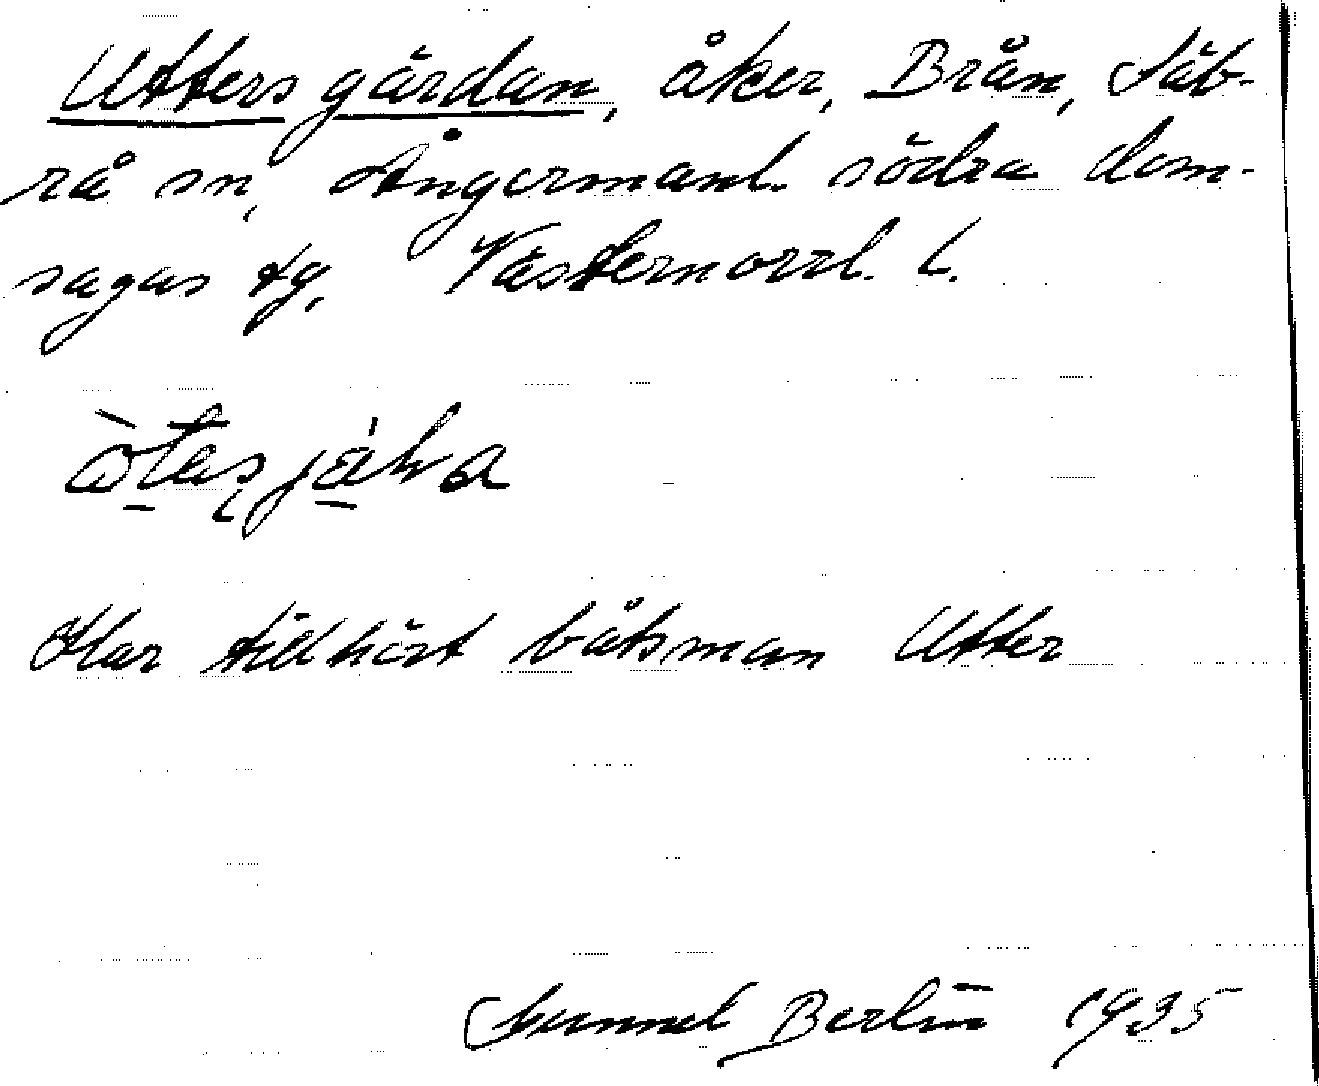 Uttersgärdan, åker, Brån, Säb-
rå sn, Ångermanl. södra dom-
sagas tg, Västernorrl. l.
Har tillhört båtsman Utter
Gunnel Berlin 1935